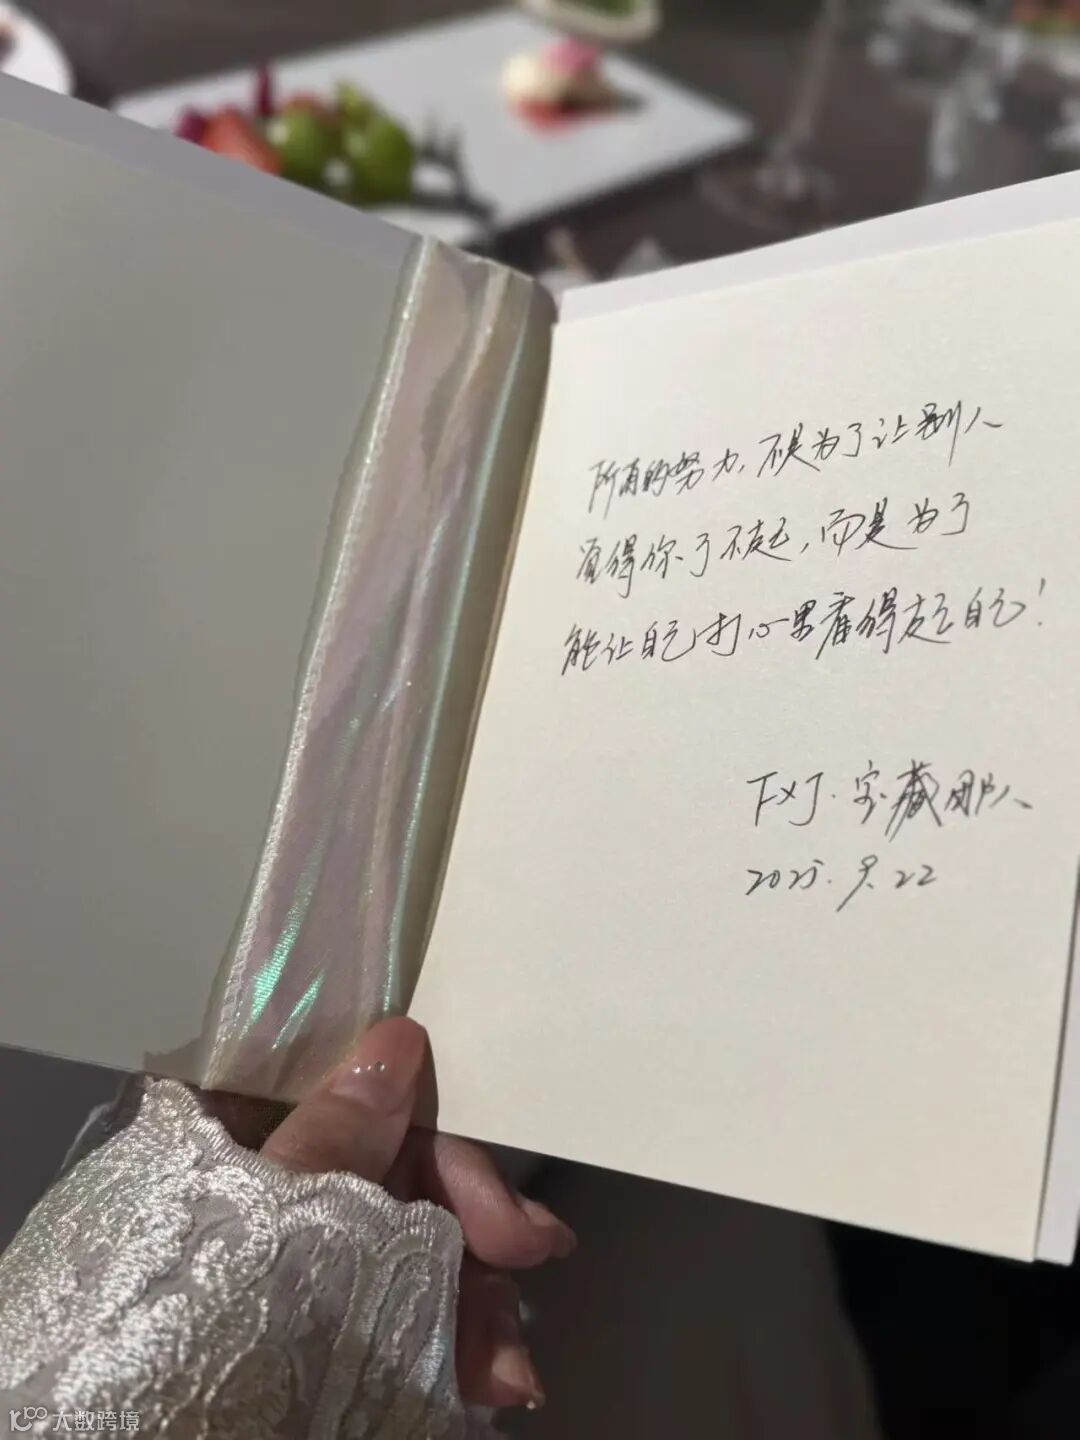 所有的努力，不是为了让别人
觉得你了不起，而是为了
能让自己打心里看得起自己！
TXJ·宝藏团队
2025.9.22
大数跨境